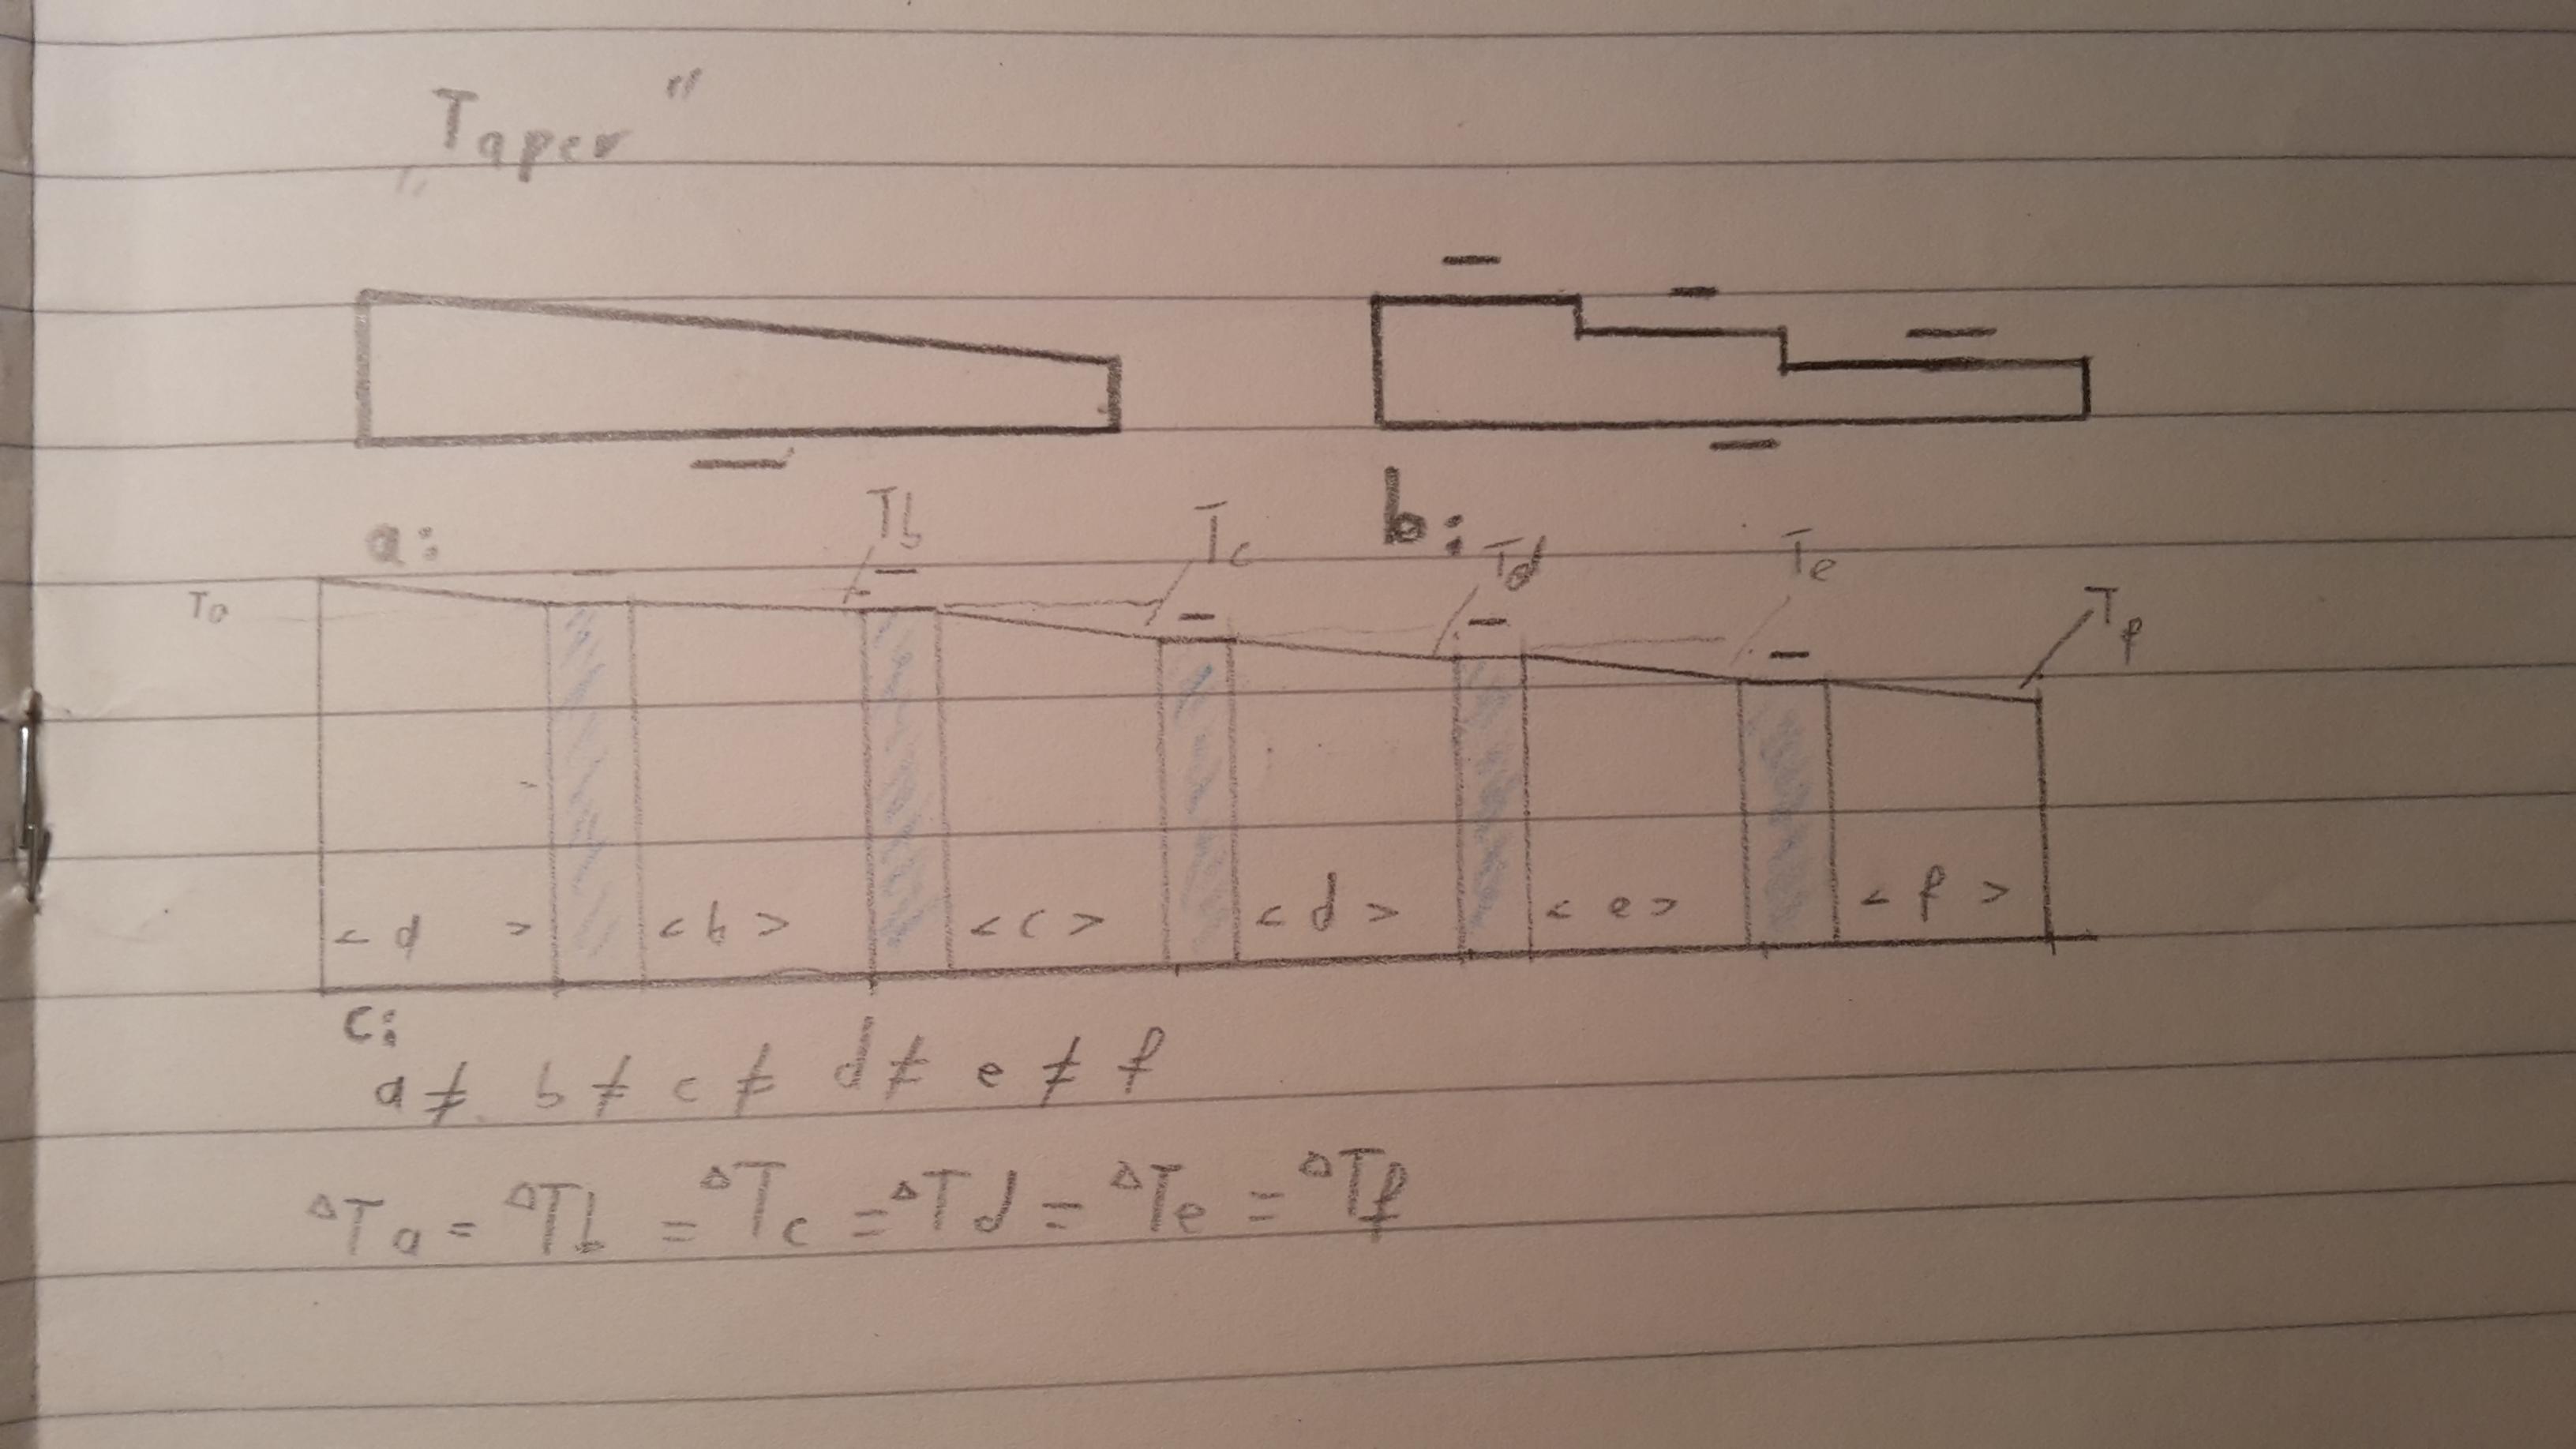 „Taper"
a:
b:
Tb
Tc
Td
Te
Tf
Ta
< d >
< b >
< c >
< d >
< e >
< f >
c:
a ≠ b ≠ c ≠ d ≠ e ≠ f
ΔTa = ΔTb = ΔTc = ΔTd = ΔTe = ΔTf